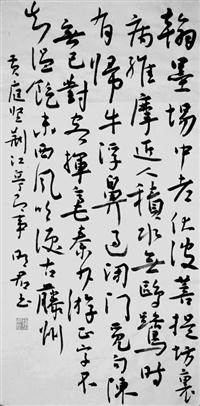 翰墨場中老伏波菩提坊裏
病維摩近人積水無鷗鷺時
有歸牛浮鼻過閉門覓句陳
無己對客揮毫秦少游正字不
知温飽未西風吹淚古藤州
黃庭堅荆江亭即事